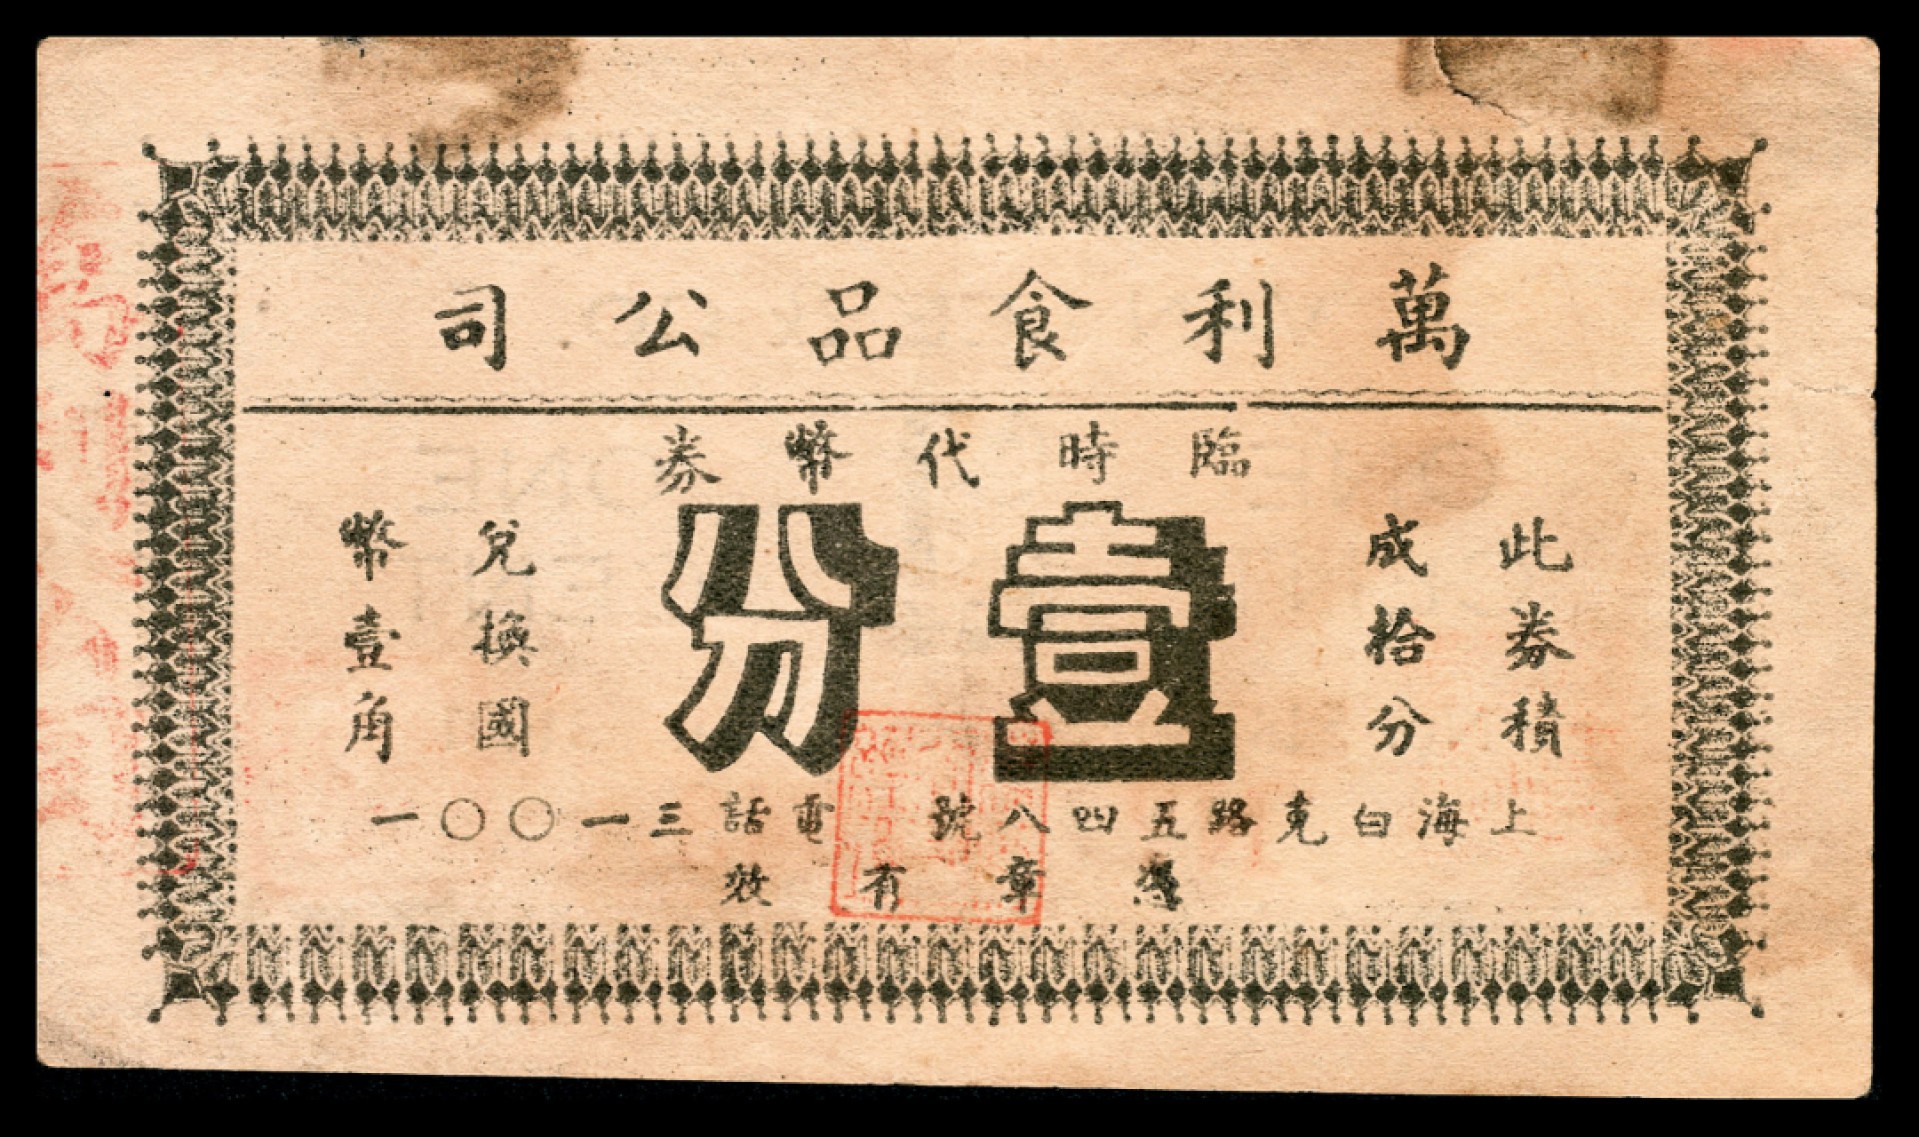 萬利食品公司
臨時代幣券
壹分
此券積
成拾分
兌換國
幣壹角
上海白克路五四八號 電話三一〇〇一
憑章有效